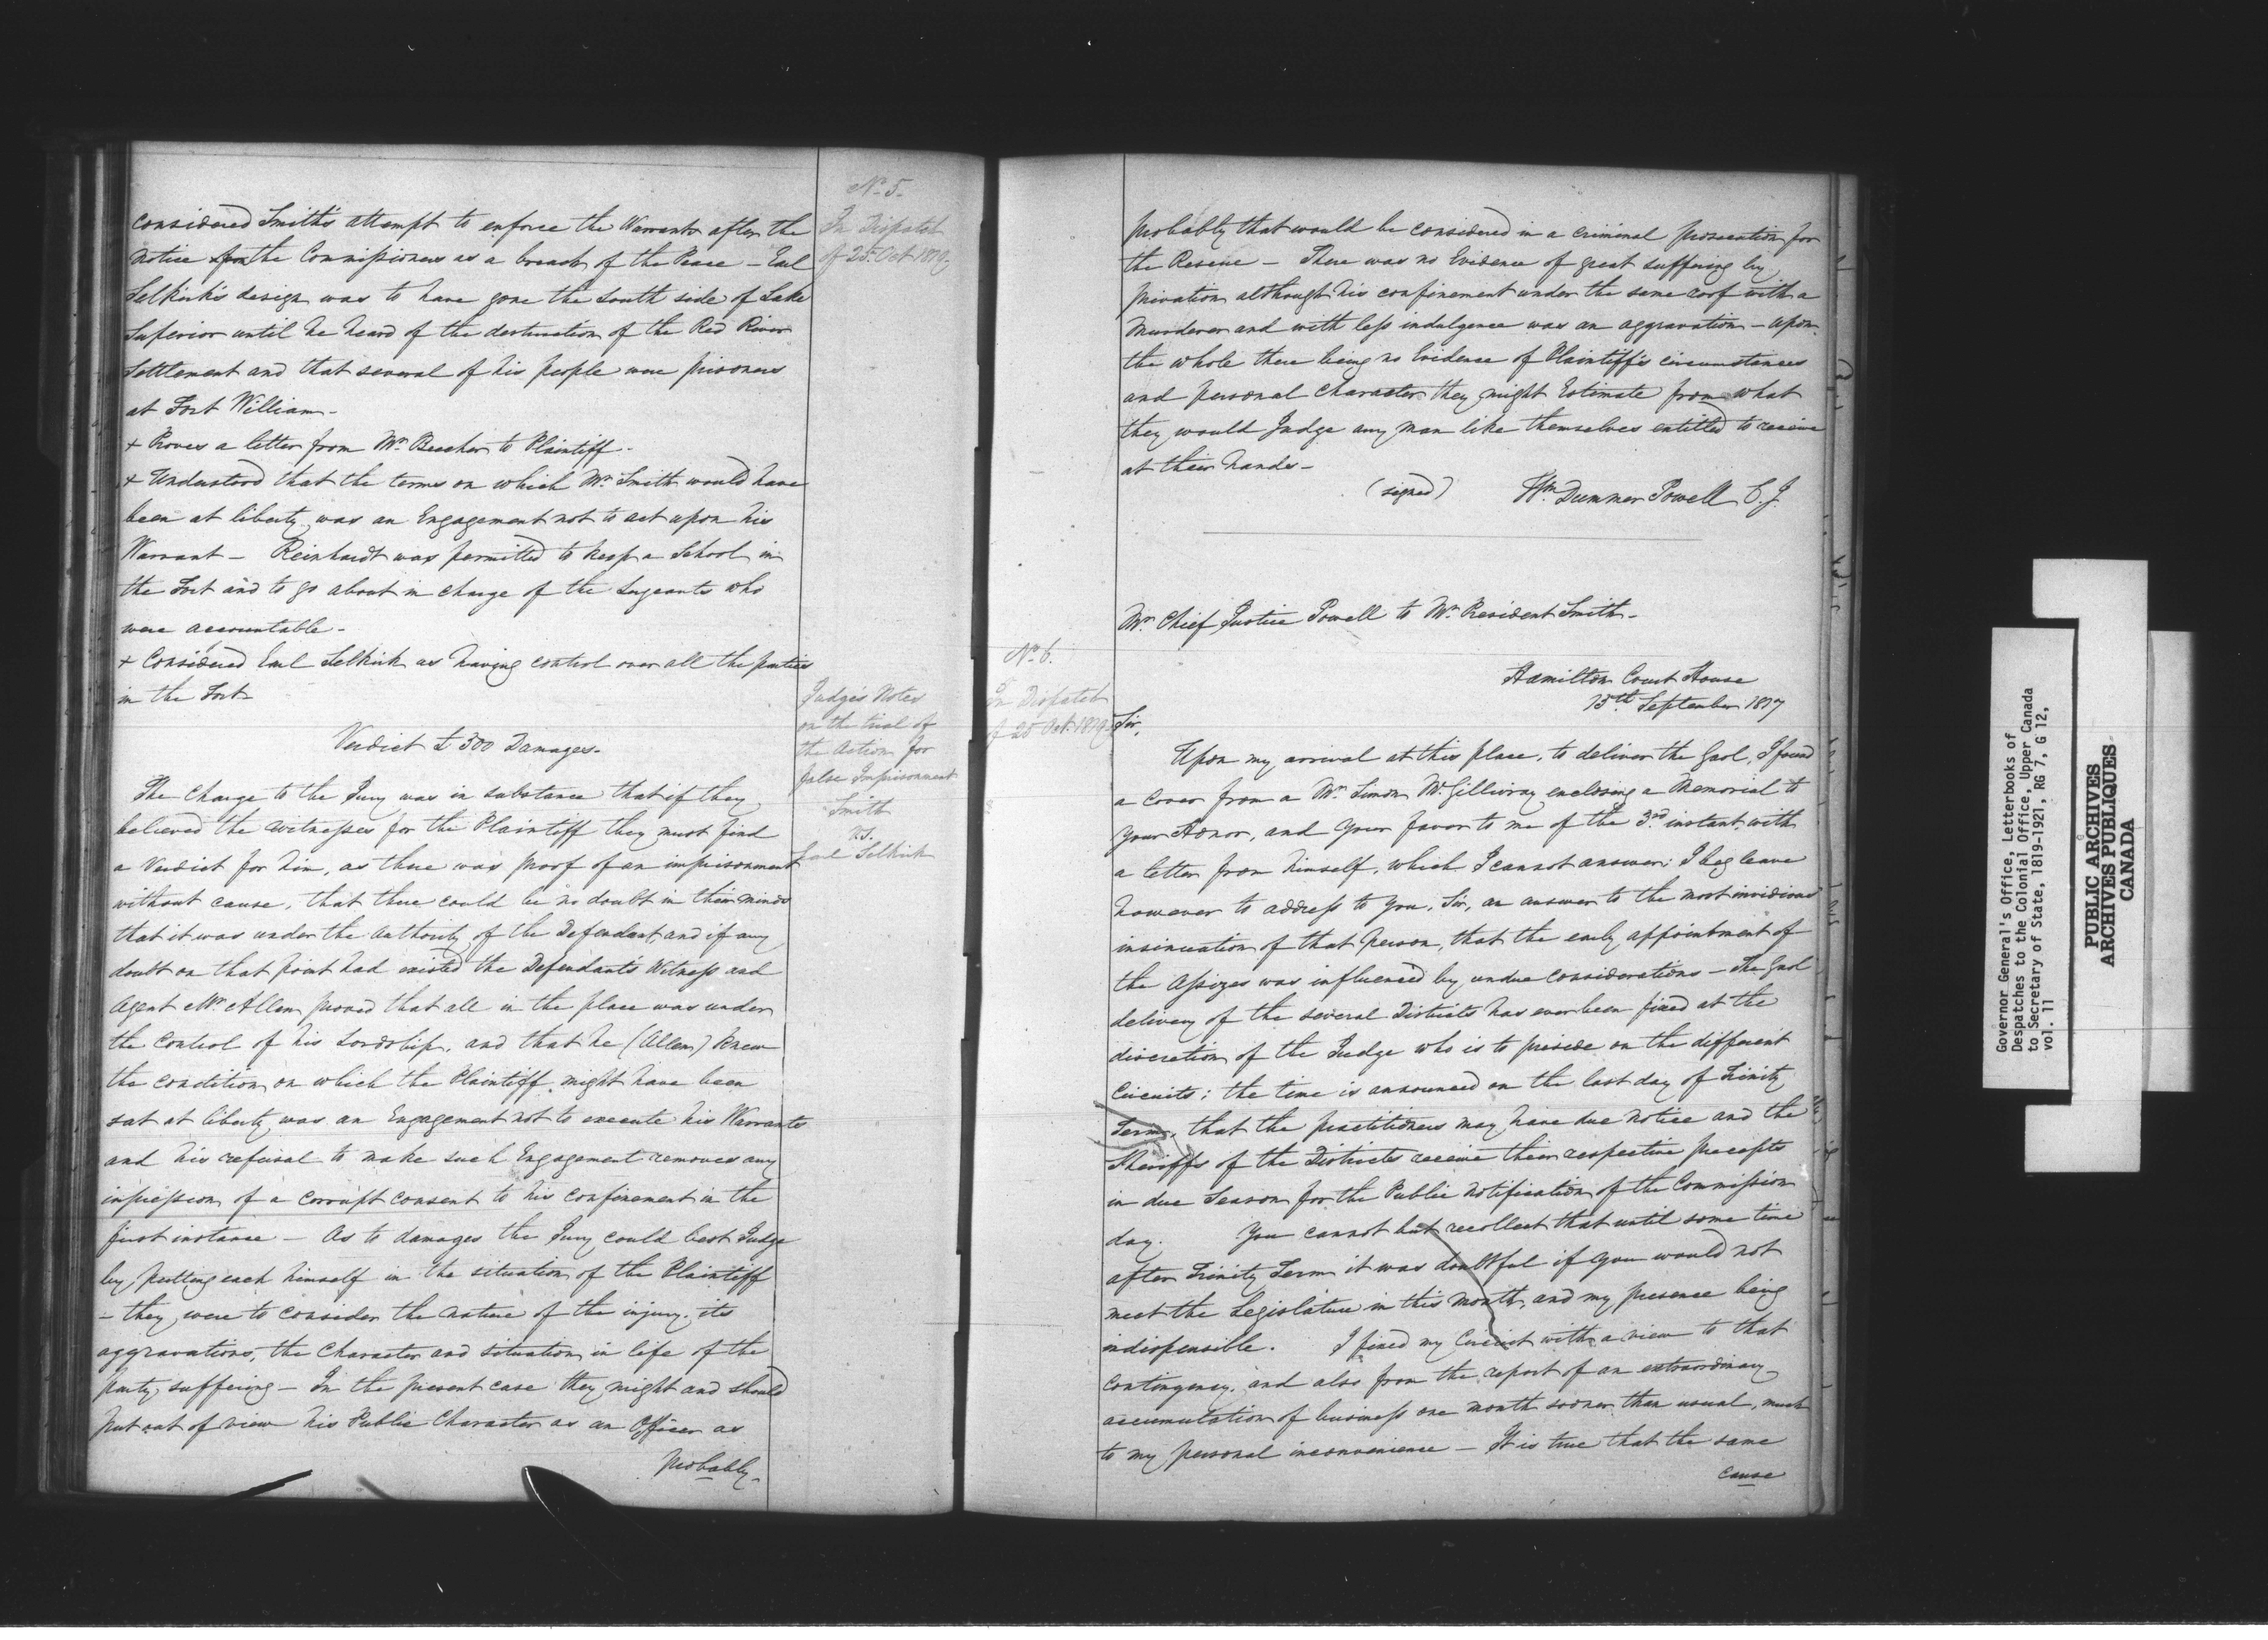 No. 5.
In Dispatch
of 25. Oct 1819.
considered Smith's attempt to enforce the Warrants after the
notice from the Commissioners as a breach of the Peace – Earl
Selkirk's design was to have gone the South side of Lake
Superior until he heard of the destruction of the Red River
Settlement and that several of his people were prisoners
at Fort William –
+ Proves a letter from Mr. Becher to Plaintiff –
+ Understood that the terms on which Mr. Smith would have
been at liberty was an Engagement not to act upon his
Warrant – Reinhardt was permitted to keep a School in
the Fort and to go about in charge of the Sergeants who
were accountable –
+ Considered Earl Selkirk as having control over all the parties
in the Fort –
Verdict £300 Damages –
Judge's Notes
on the trial of
the Action for
false Imprisonment
Smith
vs.
Earl Selkirk
The Charge to the Jury was in substance that if they
believed the Witnesses for the Plaintiff they must find
a Verdict for him, as there was proof of an imprisonment
without cause, that there could be no doubt in their minds
that it was under the Authority of the Defendant, and if any
doubt on that point had existed the Defendant's Witness and
Agent Mr. Allen proved that all in the place was under
the Control of his Lordship, and that he (Allen) knew
the condition on which the Plaintiff might have been
sat at liberty was an Engagement not to execute his Warrants
and his refusal to make such Engagement removes any
impression of a corrupt consent to his confinement in the
first instance – As to damages the Jury could best Judge
by putting each himself in the situation of the Plaintiff
– they were to consider the nature of the injury, its
aggravations, the Character and situation in life of the
party suffering – In the present case they might and should
put out of view his Public Character as an Officer as
probably –
probably that would be considered in a criminal prosecution for
the Rescue – There was no Evidence of great suffering by
privation although his confinement under the same roof with a
Murderer and with less indulgence was an aggravation – upon
the whole there being no Evidence of Plaintiff's circumstances
and personal Character they might Estimate from what
they would Judge any man like themselves entitled to receive
at their hands –
(signed) Wm. Dummer Powell C.J.
Mr. Chief Justice Powell to Mr. President Smith –
No. 6.
In Dispatch
of 25 Oct. 1819.
Hamilton Court House
13th September 1817
Sir,
Upon my arrival at this place, to deliver the Gaol, I found
a Cover from a Mr. Simon McGillivray enclosing a Memorial to
Your Honor, and Your favor to me of the 3rd instant, with
a letter from himself, which I cannot answer; I beg leave
however to address to You, Sir, an answer to the most invidious
insinuation of that Person, that the early appointment of
the Assizes was influenced by undue considerations – The Gaol
delivery of the several Districts has ever been fixed at the
discretion of the Judge who is to preside on the different
Circuits; the time is announced on the last day of Trinity
Term, that the practitioners may have due notice and the
Sheriffs of the Districts receive their respective precepts
in due Season for the Public notification of the Commission
day. You cannot but recollect that until some time
after Trinity Term it was doubtful if You would not
meet the Legislature in this Month, and my presence being
indispensible. I fixed my Circuit with a view to that
Contingency, and also from the report of an extraordinary
accumulation of business one month sooner than usual, much
to my personal inconvenience – It is true that the same
cause
Governor General's Office, Letterbooks of
Despatches to the Colonial Office, Upper Canada
to Secretary of State, 1819-1921, RG 7, G 12,
vol. 11
PUBLIC ARCHIVES
ARCHIVES PUBLIQUES
CANADA